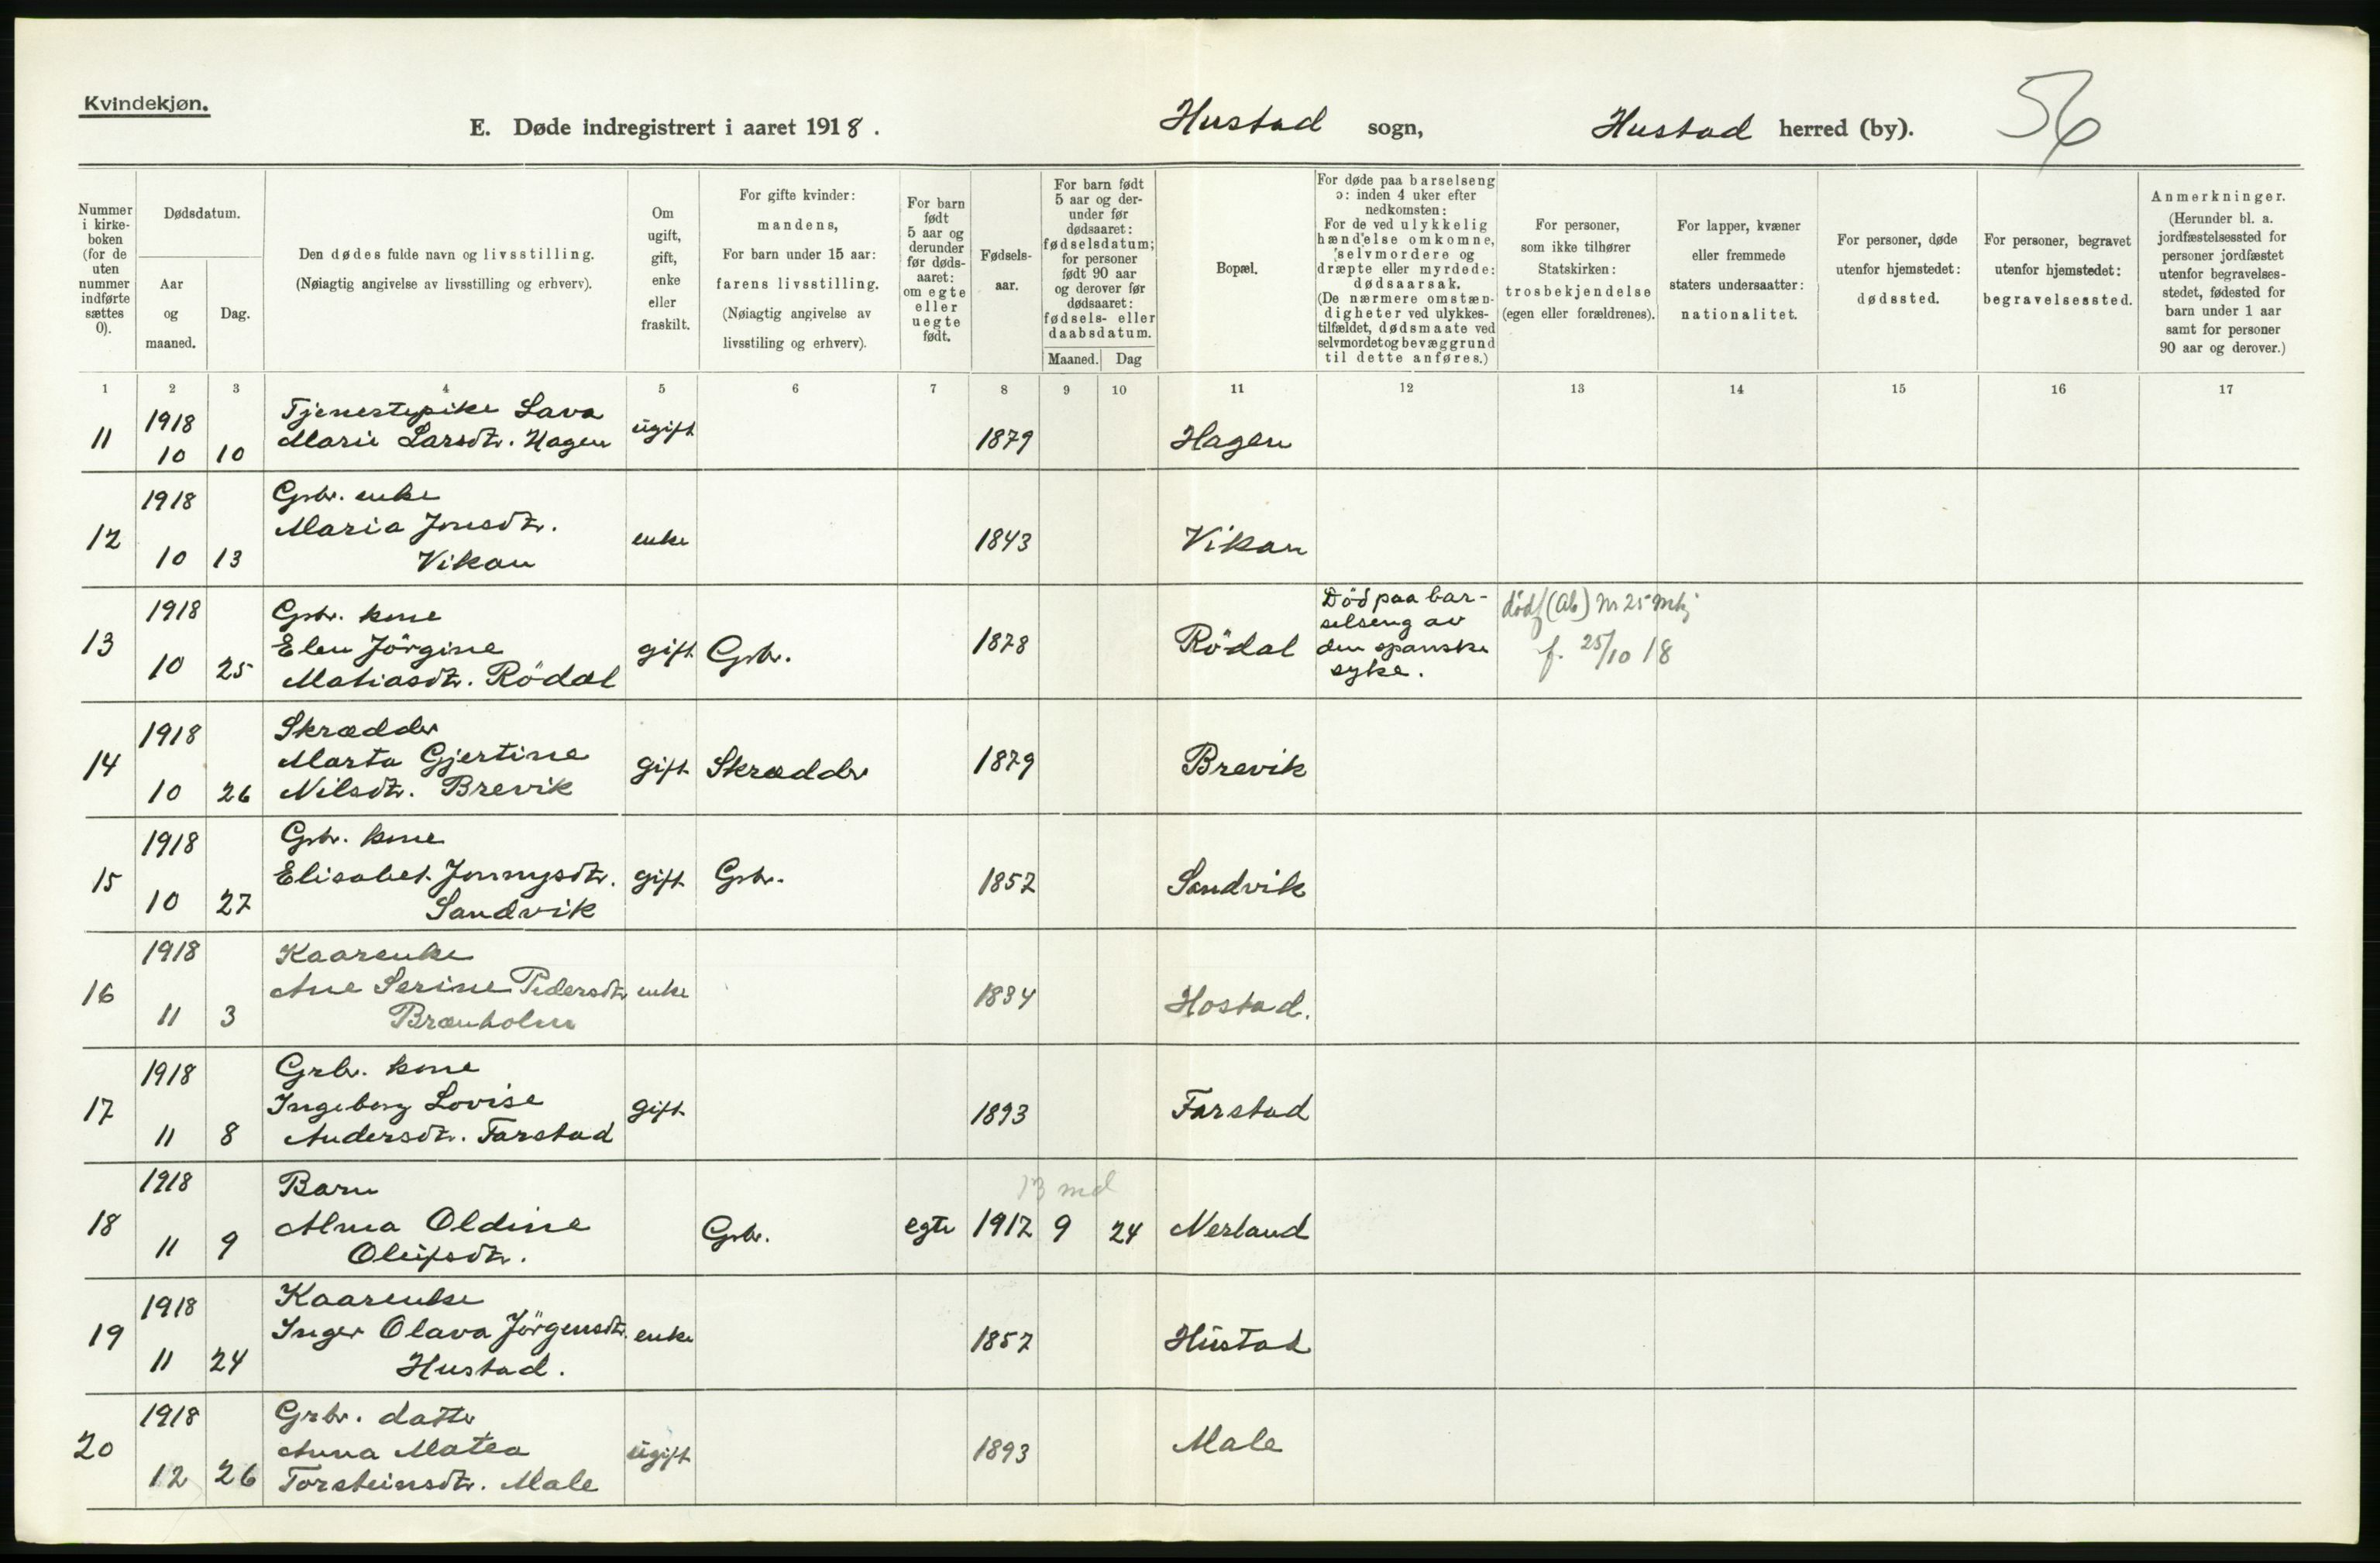 Kvindekjøn.
E. Døde indregistrert i aaret 1918. Hustad sogn, Hustad herred (by). 56
Nummer i kirke-boken (for de uten nummer indførte sættes 0).
Dødsdatum.
Aar og maaned.
Dag.
Den dødes fulde navn og livsstilling.
(Nøiagtig angivelse av livsstilling og erhverv).
Om ugift, gift, enke eller fraskilt.
For gifte kvinder: mandens,
For barn under 15 aar: farens livsstilling.
(Nøiagtig angivelse av livsstiling og erhverv).
For barn født 5 aar og derunder før døds-aaret: om egte eller uegte født.
Fødsels-aar.
For barn født 5 aar og der-under før dødsaaret: fødselsdatum; for personer født 90 aar og derover før dødsaaret: fødsels- eller daabsdatum.
Maaned. Dag
Bopæl.
For døde paa barselseng ɔ: inden 4 uker efter nedkomsten:
For de ved ulykkelig hændelse omkomne, selvmordere og dræpte eller myrdede: dødsaarsak.
(De nærmere omstæn-digheter ved ulykkes-tilfældet, dødsmaate ved selvmordet og bevæggrund til dette anføres.)
For personer, som ikke tilhører Statskirken: trosbekjendelse (egen eller forældrenes).
For lapper, kvæner eller fremmede staters undersaatter: nationalitet.
For personer, døde utenfor hjemstedet: dødssted.
For personer, begravet utenfor hjemstedet: begravelsessted.
Anmerkninger.
(Herunder bl. a. jordfæstelsessted for personer jordfæstet utenfor begravelses-stedet, fødested for barn under 1 aar samt for personer 90 aar og derover.)
1 2 3 4 5 6 7 8 9 10 11 12 13 14 15 16 17
1918 Tjenestepike Lava
11 Marie Larsdtr. Hagen ugift 1879 Hagen
10 10
1918 Grbr. enke
12 Maria Jonsdtr. enke 1843 Vikan
10 13 Vikan
1918 Gbr. kone Död paa bar- dödf (Ab) nr 25 mkj
13 Elen Jörgine gift Gbr. 1878 Rödal selseng av
10 25 Matiasdtr. Rödal den spanske f. 25/10 18
syke.
1918 Skrædder
14 Marta Gjertine gift Skrædder 1879 Brevik
10 26 Nilsdtr. Brevik
1918 Gbr. kone
15 Elisabet gift Gbr. 1857 Sandvik
10 27 Sandvik
1918 Kaarenke
16 Ane Serine Pedersdtr enke 1834 Hostad.
11 3 Brænholm
1918 Grbr. kone
17 Ingeborg Lovise gift 1893 Farstad
11 8 Andersdtr. Farstad
1918 Barn 13 md
18 Alma Oldine Gbr. egte 1917 9 24 Nerland
11 9 Oleifsdtr.
1918 Kaarenke
19 Inger Olava Jörgensdtr. enke 1857 Hustad
11 24 Hustad.
1918 Grbr. datter
20 Anna Matea ugift 1893 Male
12 26 Torsteinsdtr. Male